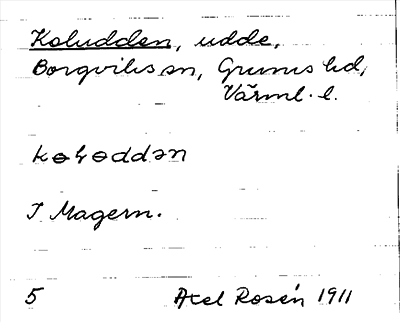 Koludden, udde,
Borgviks sn, Grums hd,
Värml. l.
kɵlɵddən
I Magern.
5 Axel Rosén 1911